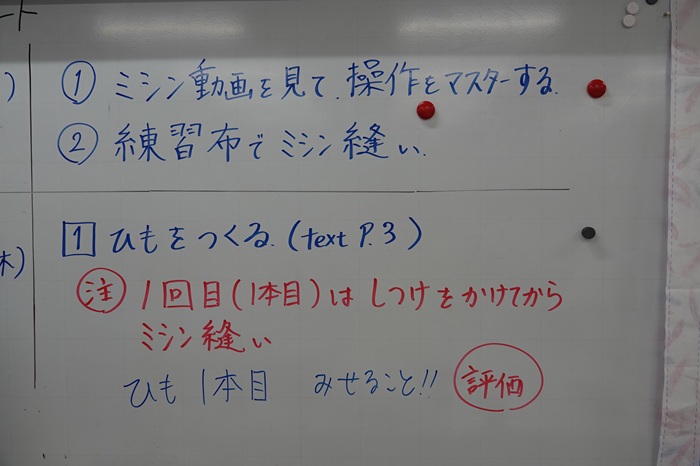 ート
① ミシン動画を見て、操作をマスターする.
② 練習布でミシン縫い.
1 ひもをつくる.(text P.3)
木)
注 1回目(1本目)はしつけをかけてから
ミシン縫い
ひも 1本目 みせること!! 評価